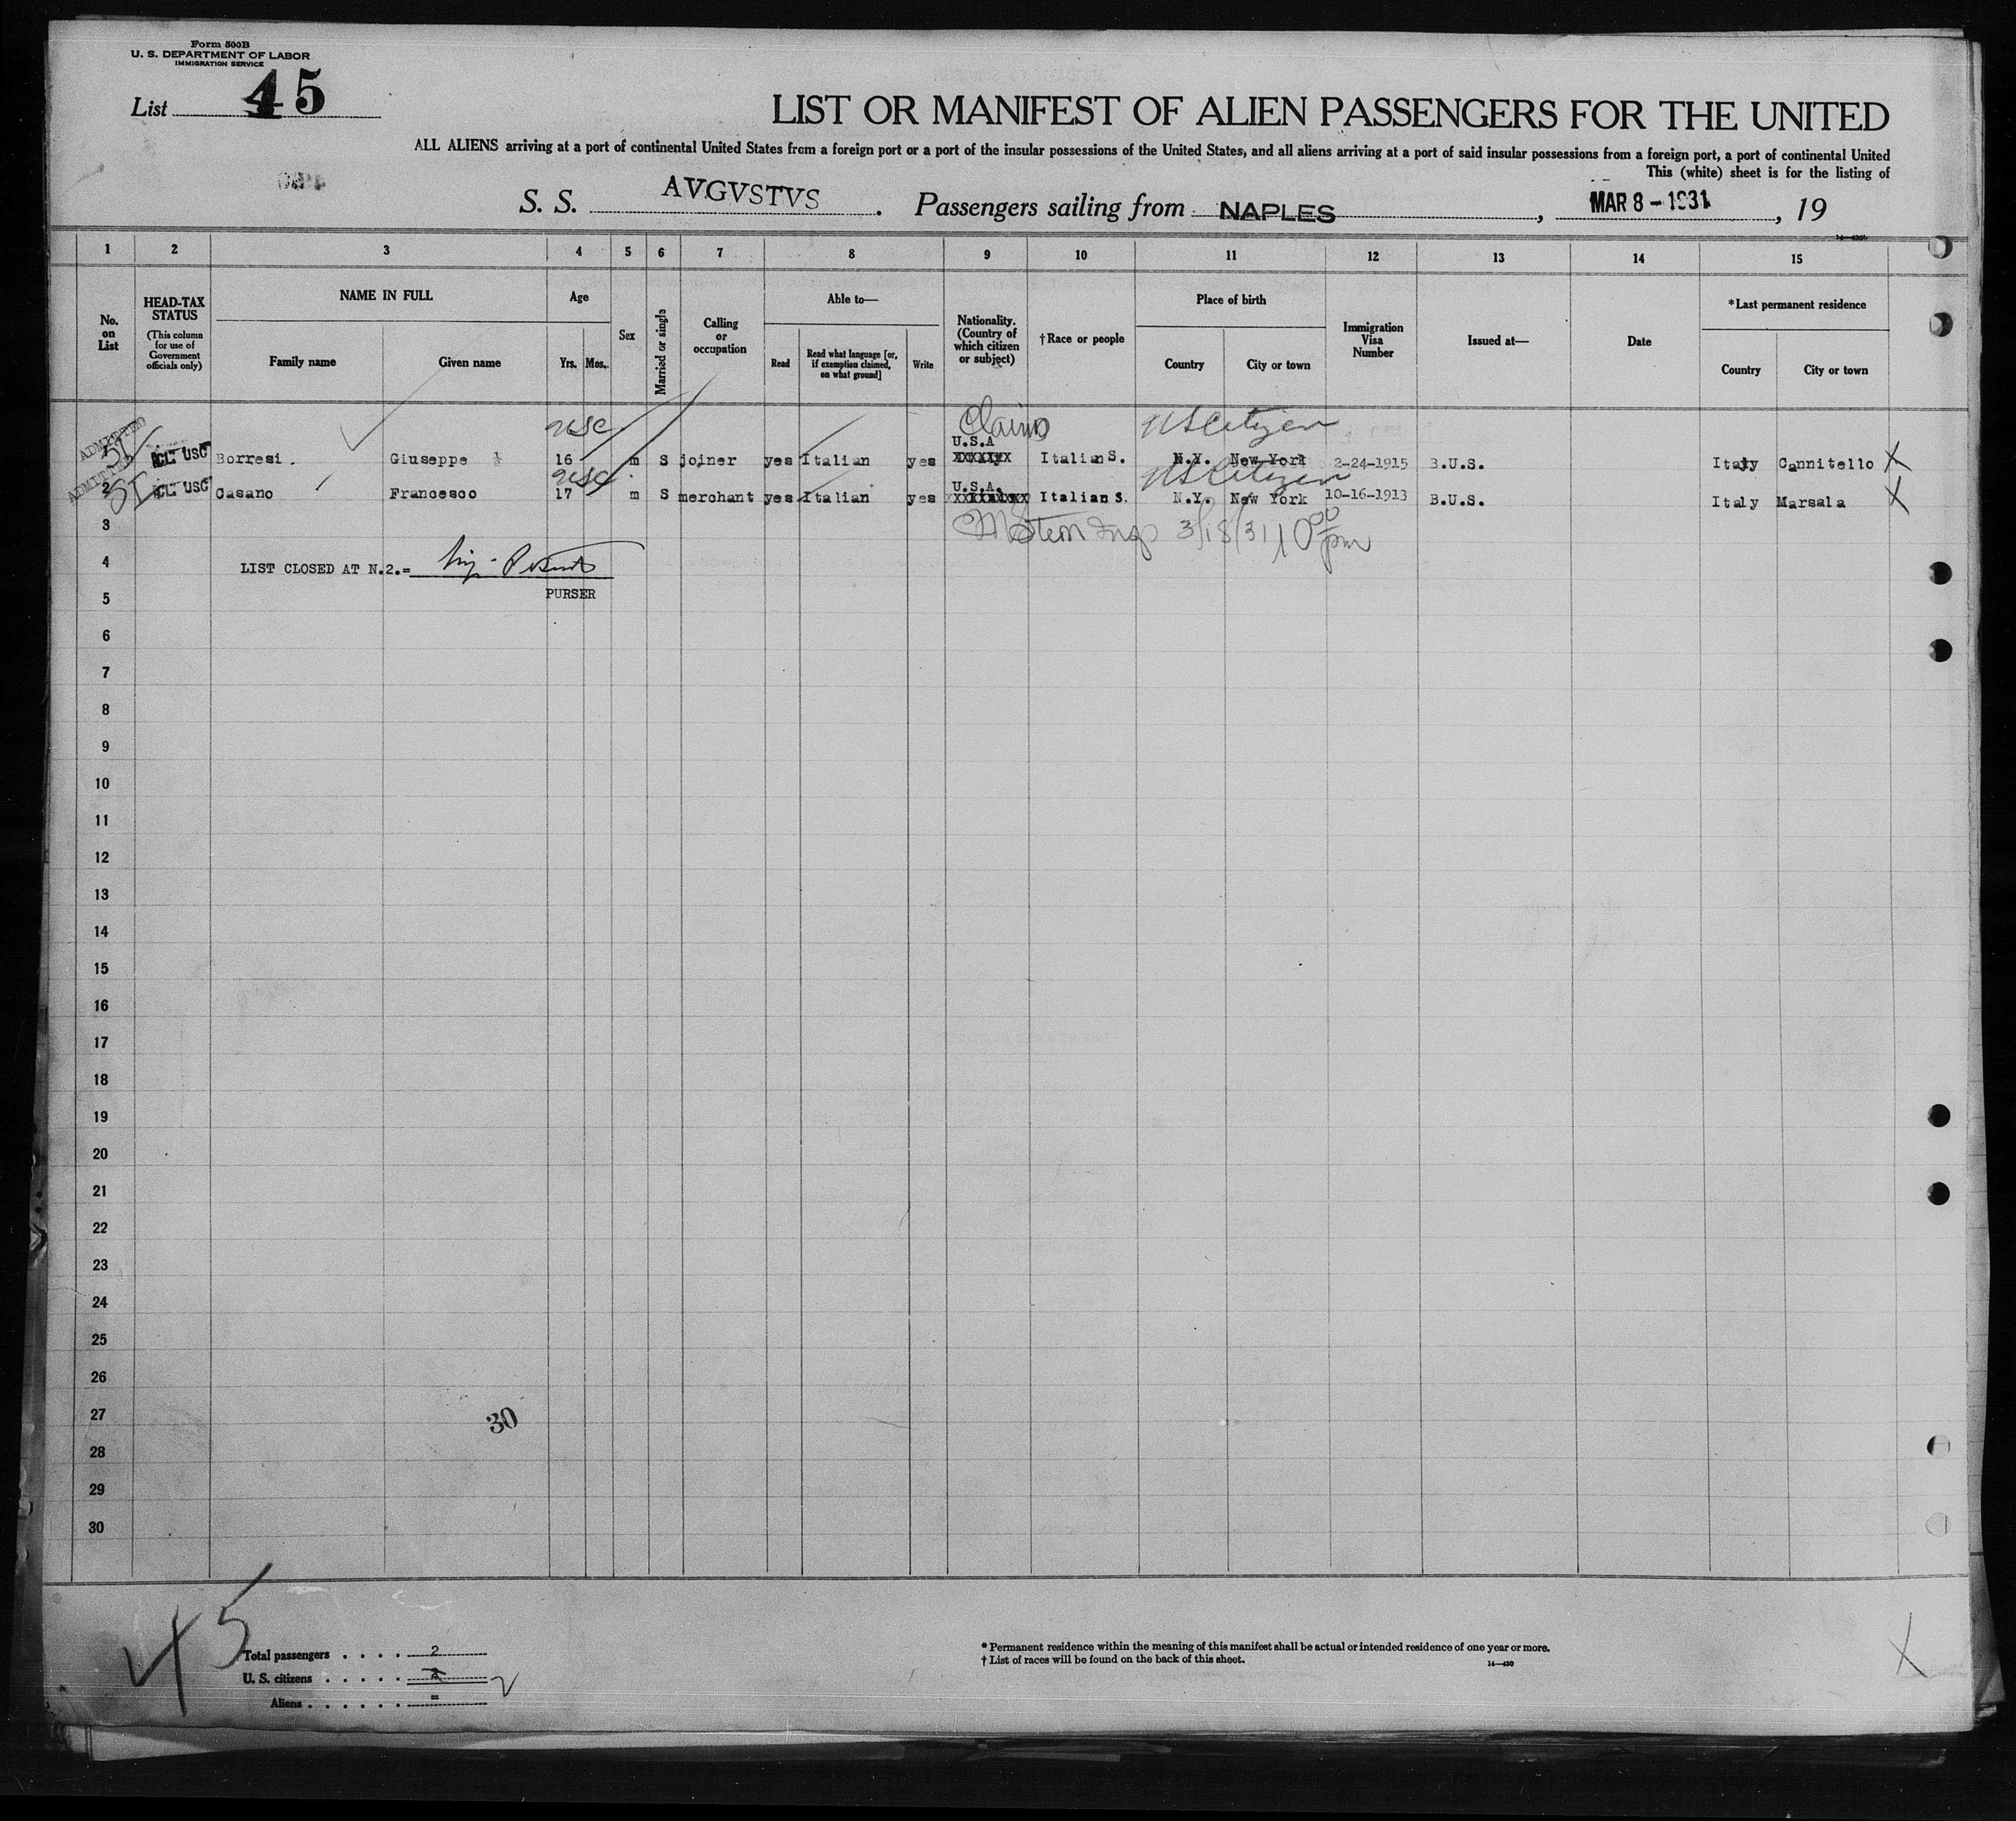 Form 500B
U. S. DEPARTMENT OF LABOR
IMMIGRATION SERVICE
List 45
LIST OR MANIFEST OF ALIEN PASSENGERS FOR THE UNITED
ALL ALIENS arriving at a port of continental United States from a foreign port or a port of the insular possessions of the United States, and all aliens arriving at a port of said insular possessions from a foreign port, a port of continental United
This (white) sheet is for the listing of
S. S. AVGVSTVS. Passengers sailing from NAPLES, MAR 8 - 1931, 19
1 2 3 4 5 6 7 8 9 10 11 12 13 14 15
No. on List
HEAD-TAX STATUS
(This column for use of Government officials only)
NAME IN FULL
Family name
Given name
Age
Yrs.
Mos.
Sex
Married or single
Calling or occupation
Able to—
Read
Read what language [or, if exemption claimed, on what ground]
Write
Nationality. (Country of which citizen or subject)
†Race or people
Place of birth
Country
City or town
Immigration Visa Number
Issued at—
Date
*Last permanent residence
Country
City or town
USC Claims US Citizen
ADMITTED SI USC Borresi. Giuseppe 16 m S joiner yes Italian yes U.S.A Italian S. N.Y. New York 2-24-1915 B.U.S. Italy Cannitello X
USC US Citizen
ADMITTED 2 SI USC Casano Francesco 17 m S merchant yes Italian yes U.S.A. Italian S. N.Y. New York 10-16-1913 B.U.S. Italy Marsala X
3 3/18/31 10 00 pm
4 LIST CLOSED AT N.2.=
5 PURSER
6
7
8
9
10
11
12
13
14
15
16
17
18
19
20
21
22
23
24
25
26
27 30
28
29
30
45
Total passengers . . . . 2
U. S. citizens . . . . . 2 2
Aliens . . . . . . =
* Permanent residence within the meaning of this manifest shall be actual or intended residence of one year or more.
† List of races will be found on the back of this sheet.
14—430
X